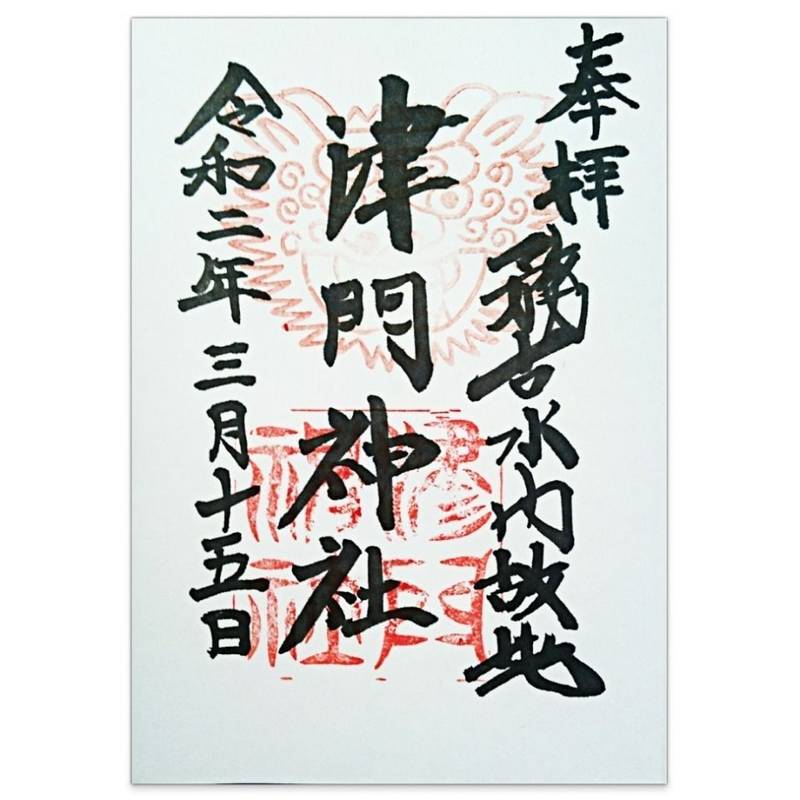 奉拝 務古水門故地
津門神社
令和二年三月十五日
津門
神社